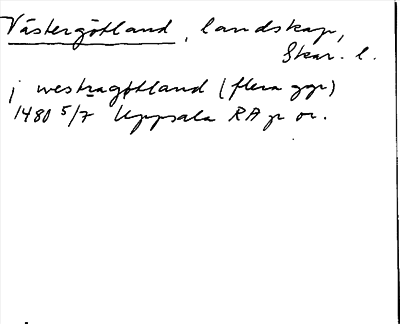 Västergötland, landskap,
Skar. l.
j westragøtland (flera ggr)
1480 5/7 Uppsala RA p or.